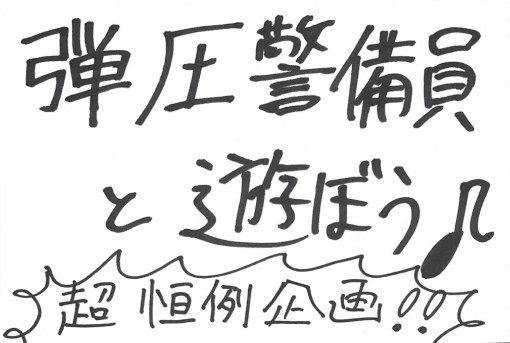 弾圧警備員
と遊ぼう♪
超恒例企画!!